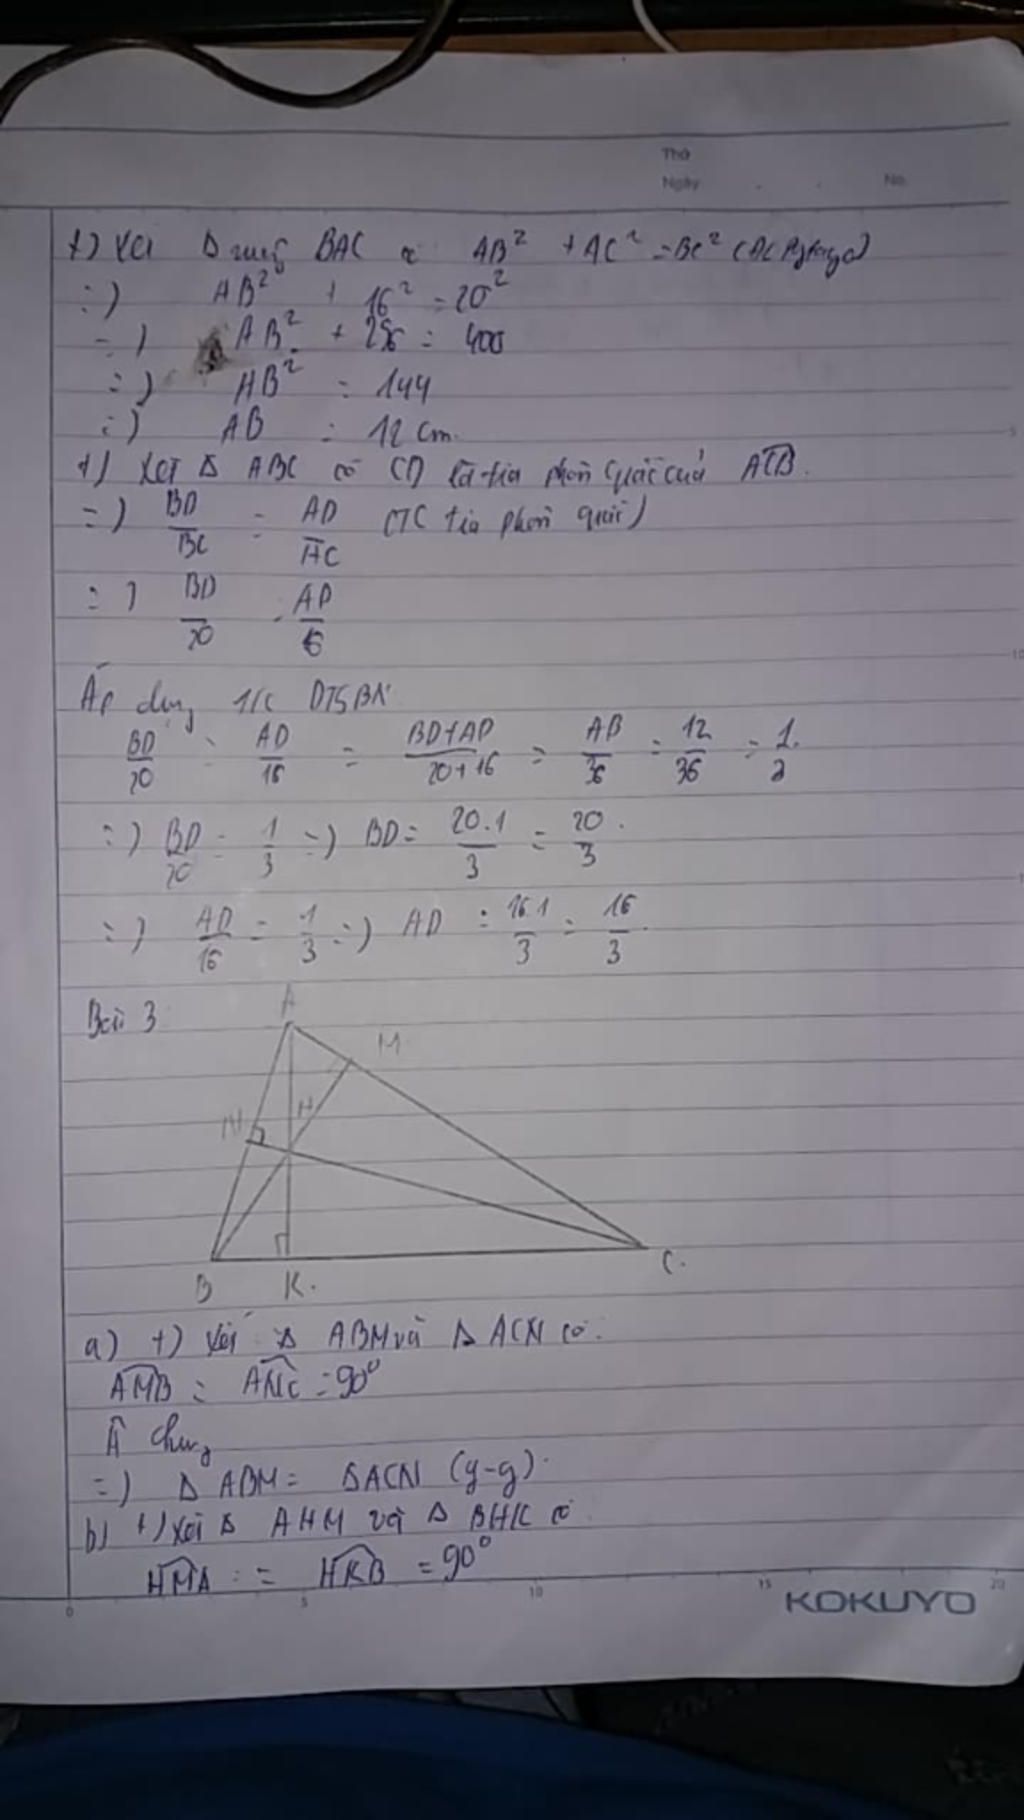 Thứ
Ngày No.
+) Xét Δ vuông BAC có AB² + AC² = BC² (ĐL Pytago)
=) AB² + 16² = 20²
=) AB² + 256 = 400
=) AB² = 144
=) AB = 12 cm.
+) Xét Δ ABC có CD là tia phân giác của ACB.
=) BD/BC = AD/AC (TC tia phân giác)
=) BD/20 = AD/16
Áp dụng T/C DTSBN
BD/20 = AD/16 = BD+AD/20+16 = AB/36 = 12/36 = 1/3.
=) BD/20 = 1/3 =) BD = 20.1/3 = 20/3.
=) AD/16 = 1/3 =) AD = 16.1/3 = 16/3.
Bài 3
A
M
N
H
B K. C.
a) +) Xét Δ ABM và Δ ACN có:
AMB = ANC = 90°
 chung
=) Δ ABM = Δ ACN (g-g).
b) +) Xét Δ AHM và Δ BHK có
HMA = HKB = 90°
0 5 10 15 20
KOKUYO